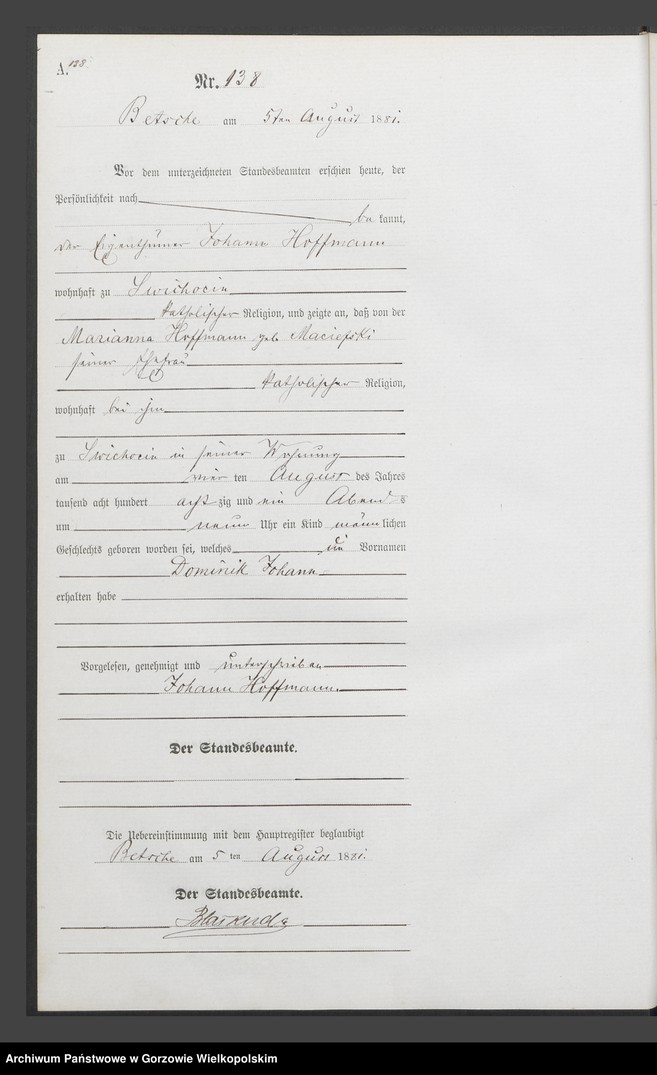 A. 138
Nr. 138
Betsche am 5ten August 1881.
Vor dem unterzeichneten Standesbeamten erschien heute, der
Persönlichkeit nach
be kannt,
der Eigenthümer Johann Hoffmann
wohnhaft zu Swichocin
katholischer Religion, und zeigte an, daß von der
Marianna Hoffmann geb Maciefski
seiner Ehefrau
katholischer Religion,
wohnhaft bei ihm
zu Swichocin in seiner Wohnung
am vier ten August des Jahres
tausend acht hundert acht zig und ein Abend s
um neun Uhr ein Kind männ lichen
Geschlechts geboren worden sei, welches die Vornamen
Dominik Johann
erhalten habe
Vorgelesen, genehmigt und unterschrieben
Johann Hoffmann.
Der Standesbeamte.
Die Uebereinstimmung mit dem Hauptregister beglaubigt
Betsche am 5 ten August 1881.
Der Standesbeamte.
Archiwum Państwowe w Gorzowie Wielkopolskim